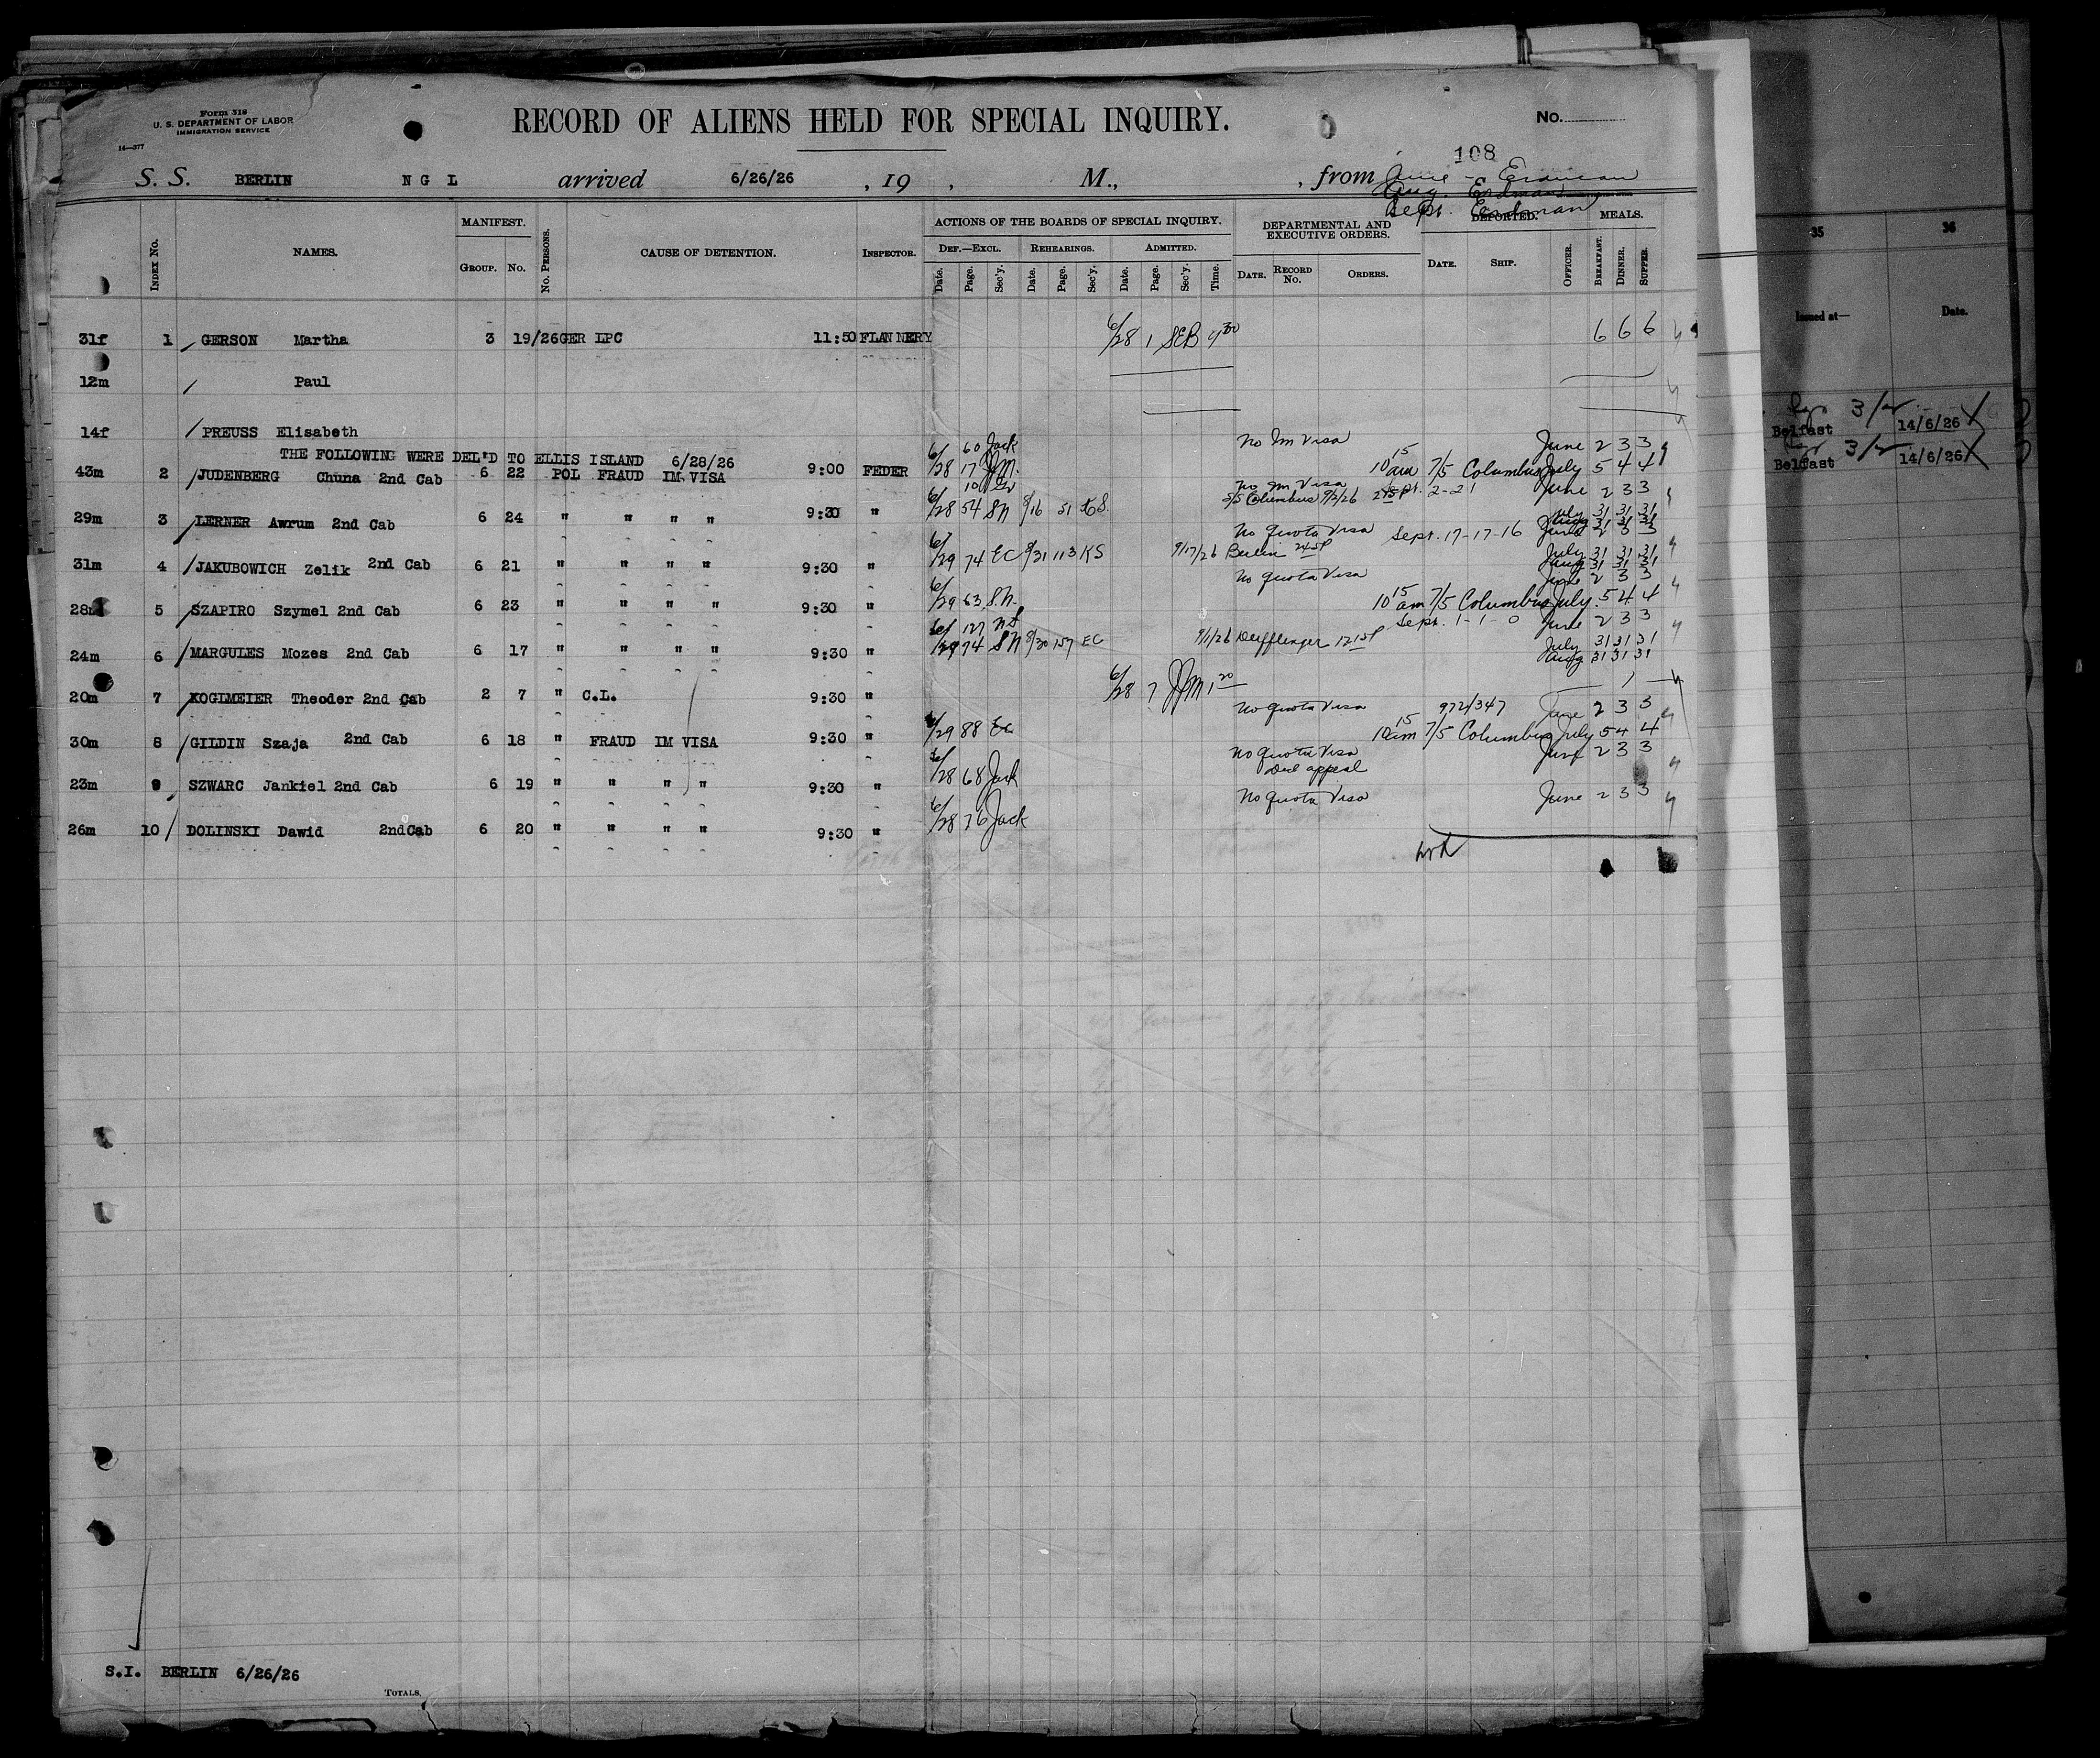 Form 318
U. S. DEPARTMENT OF LABOR
IMMIGRATION SERVICE
14—377
RECORD OF ALIENS HELD FOR SPECIAL INQUIRY.
No.
108
S. S. BERLIN N G L arrived 6/26/26 , 19 , M., , from June - Erdman
Aug. Erdman
Sept. Erdman
INDEX No. NAMES. MANIFEST. GROUP. No. No. PERSONS. CAUSE OF DETENTION. INSPECTOR. ACTIONS OF THE BOARDS OF SPECIAL INQUIRY. DEPARTMENTAL AND EXECUTIVE ORDERS. DEPORTED. MEALS.
DEF.—EXCL. REHEARINGS. ADMITTED.
Date. Page. Sec'y. Date. Page. Sec'y. Date. Page. Sec'y. Time. DATE. RECORD No. ORDERS. DATE. SHIP. OFFICER. BREAKFAST. DINNER. SUPPER.
31f 1 GERSON Martha 3 19/26 GER LPC 11:50 FLANNERY 6/28 1 SEB 9 30 6 6 6
12m Paul
14f PREUSS Elisabeth
THE FOLLOWING WERE DEL'D TO ELLIS ISLAND 6/28/26
43m 2 JUDENBERG Chuna 2nd Cab 6 22 POL FRAUD IM VISA 9:00 FEDER 6/28 60 Jack 17 JM. No Im Visa 10 15 am 7/5 Columbus June 2 3 3 July 5 4 4
29m 3 LERNER Awrum 2nd Cab 6 24 " " " " 9:30 " 6/28 54 SN 8/16 51 No Im Visa S/S Columbus 9/2/26 Sept. 2-2-1 June 2 3 3 July 31 31 31 Aug 31 31 31
31m 4 JAKUBOWICH Zelik 2nd Cab 6 21 " " " " 9:30 " 6/29 74 EC 8/31 113 KS 9/17/26 Berlin No Quota Visa Sept. 17-17-16 June 2 3 3 July 31 31 31 Aug 31 31 31
28m 5 SZAPIRO Szymel 2nd Cab 6 23 " " " " 9:30 " 6/29 63 S.N. No quota Visa 10 15 am 7/5 Columbus June 2 3 3 July 5 4 4
24m 6 MARGULES Mozes 2nd Cab 6 17 " " " " 9:30 " 127 74 SN 8/30 157 EC 9/1/26 Derfflinger Sept. 1-1-0 June 2 3 3 July 31 31 31 Aug 31 31 31
20m 7 KOGLMEIER Theoder 2nd Cab 2 7 " C.L. 9:30 " 6/28 7 JJM 1 20 1
30m 8 GILDIN Szaja 2nd Cab 6 18 " FRAUD IM VISA 9:30 " 6/29 88 EC No Quota Visa 972/347 10 15 am 7/5 Columbus June 2 3 3 July 5 4 4
23m 9 SZWARC Jankiel 2nd Cab 6 19 " " " " 9:30 " 6/28 68 Jack No Quota Visa appeal June 2 3 3
26m 10 DOLINSKI Dawid 2nd Cab 6 20 " " " " 9:30 " 6/28 76 Jack No Quota Visa June 2 3 3
S.I. BERLIN 6/26/26
TOTALS.
35 36
Issued at— Date.
Belfast 3/ 14/6/26
Belfast 3/ 14/6/26